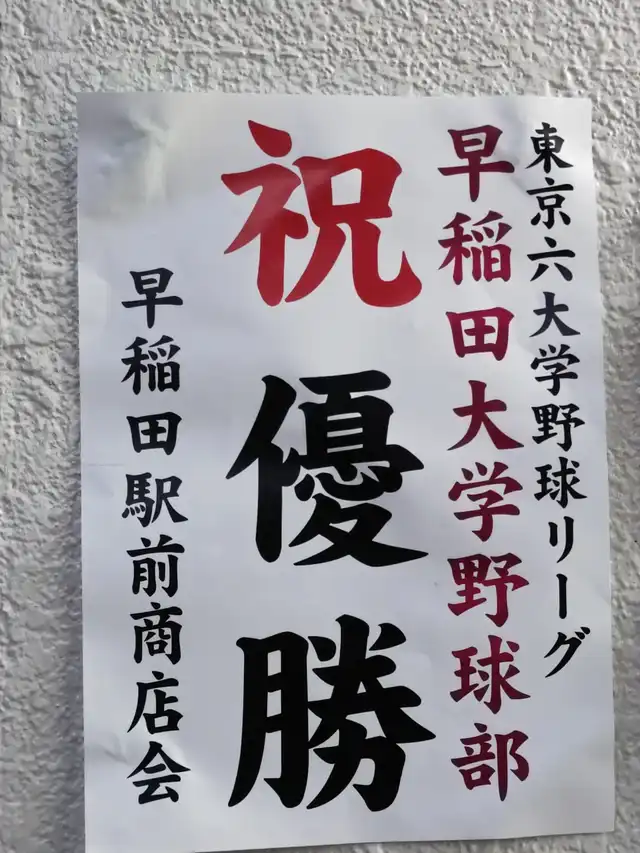 東京六大学野球リーグ
早稲田大学野球部
祝優勝
早稲田駅前商店会